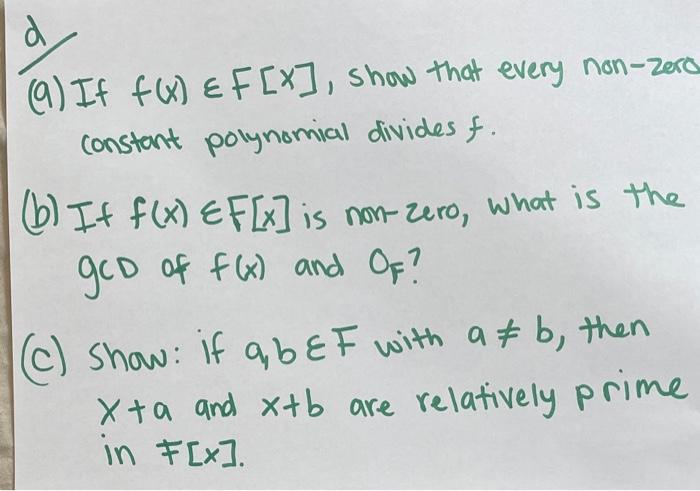 d
(a) If f(x) ∈ F[x], show that every non-zero
constant polynomial divides f.
(b) If f(x) ∈ F[x] is non-zero, what is the
gcD of f(x) and 0_F?
(c) Show: if a,b ∈ F with a ≠ b, then
x+a and x+b are relatively prime
in F[x].